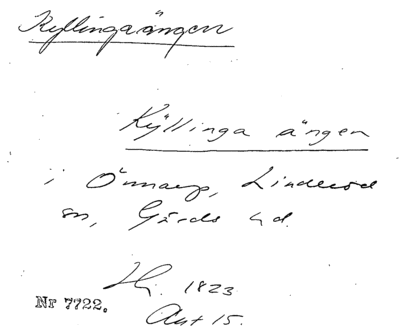 Kyllingaängen
Kyllinga ängen
i Önnarp, Linderöd
sn, Gärds hd.
Hy. 1823
Nr 7722.
Akt 15.